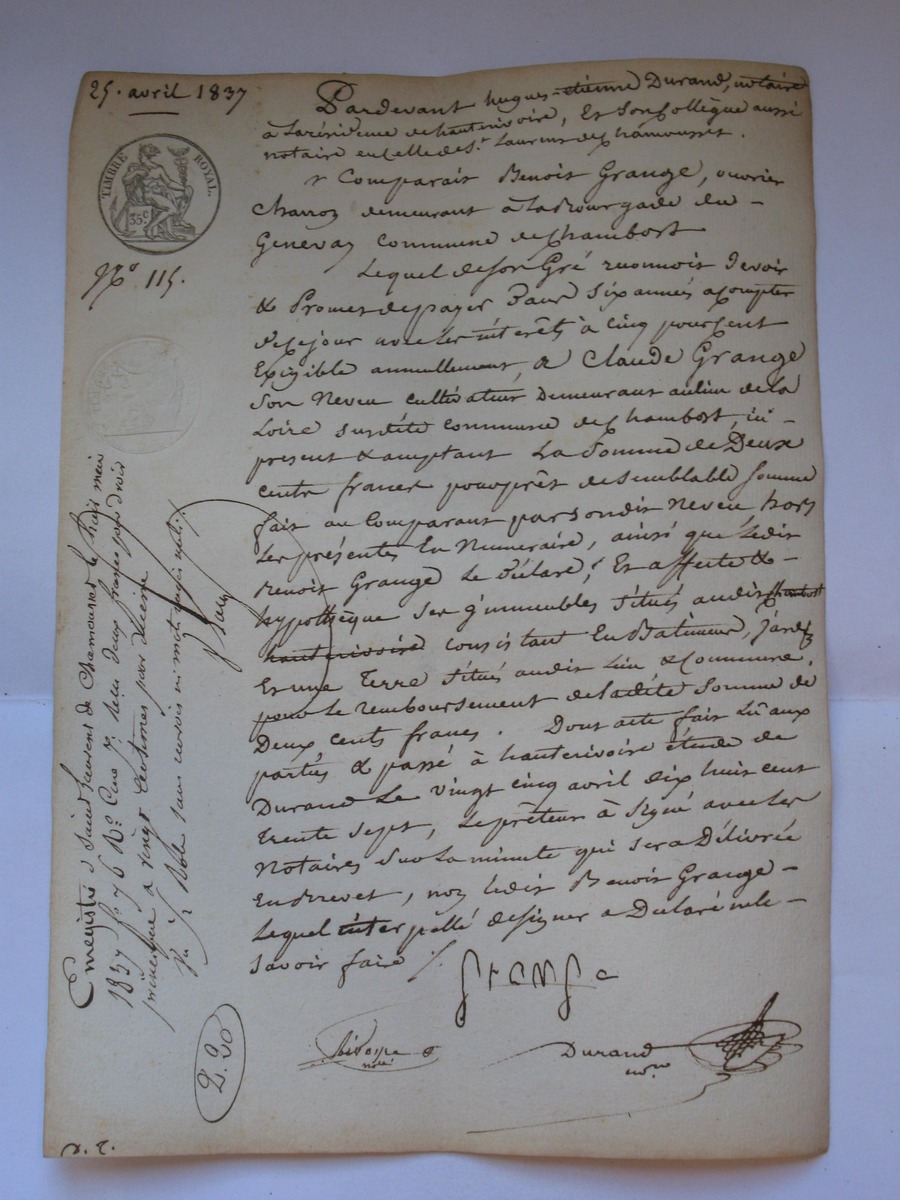 25. avril 1837
TIMBRE ROYAL.
35c
No 115.
Pardevant hugues-étienne Durand, notaire
à la résidence de hauterivoire, et son Collègue aussi
notaire en celle de St. Laurent de chamousset.
Comparait Benoit Grange, ouvrier
charron demeurant à la Bourgade du
Genevay Commune de Chambost
Lequel de son Gré reconnoit devoir
& Promet de payer dans six années a compter
de ce jour avec les intérêts à cinq pour cent
Exigible annuellement, a Claude Grange
son Neveu cultivateur Demeurant au lieu de la
Loire susdite commune de Chambost, ici
present & acceptant La Somme de Deux
cents francs pour prêt de semblable somme
fait au Comparant par son dit Neveu, hors
les présentes En Numeraire, ainsi que ledit
Benoit Grange le déclare, Et affecte &
hypothèque ses immeubles situés audit chambost
hauterivoire consistant En Batiment, Jardin
Et une Terre situés audit Lieu & Commune,
pour le remboursement de ladite somme de
Deux cents francs. Dont acte fait Lû aux
parties & passé à hauterivoire étude de
Durand Le vingt cinq avril dix huit cent
trente sept, le prêteur à signé avec les
Notaires sur la minute qui sera Délivrée
En Brevet, non ledit Benoit Grange
Lequel interpellé de signer a Déclaré ne le
savoir faire ./.
grange
Durand
nore
Enregistré à Saint Laurent de Chamousset le huit mai
1837 fo 76 Ro Case 7. reçu deux francs pour droit
principal & vingt centimes pour décime
2.30